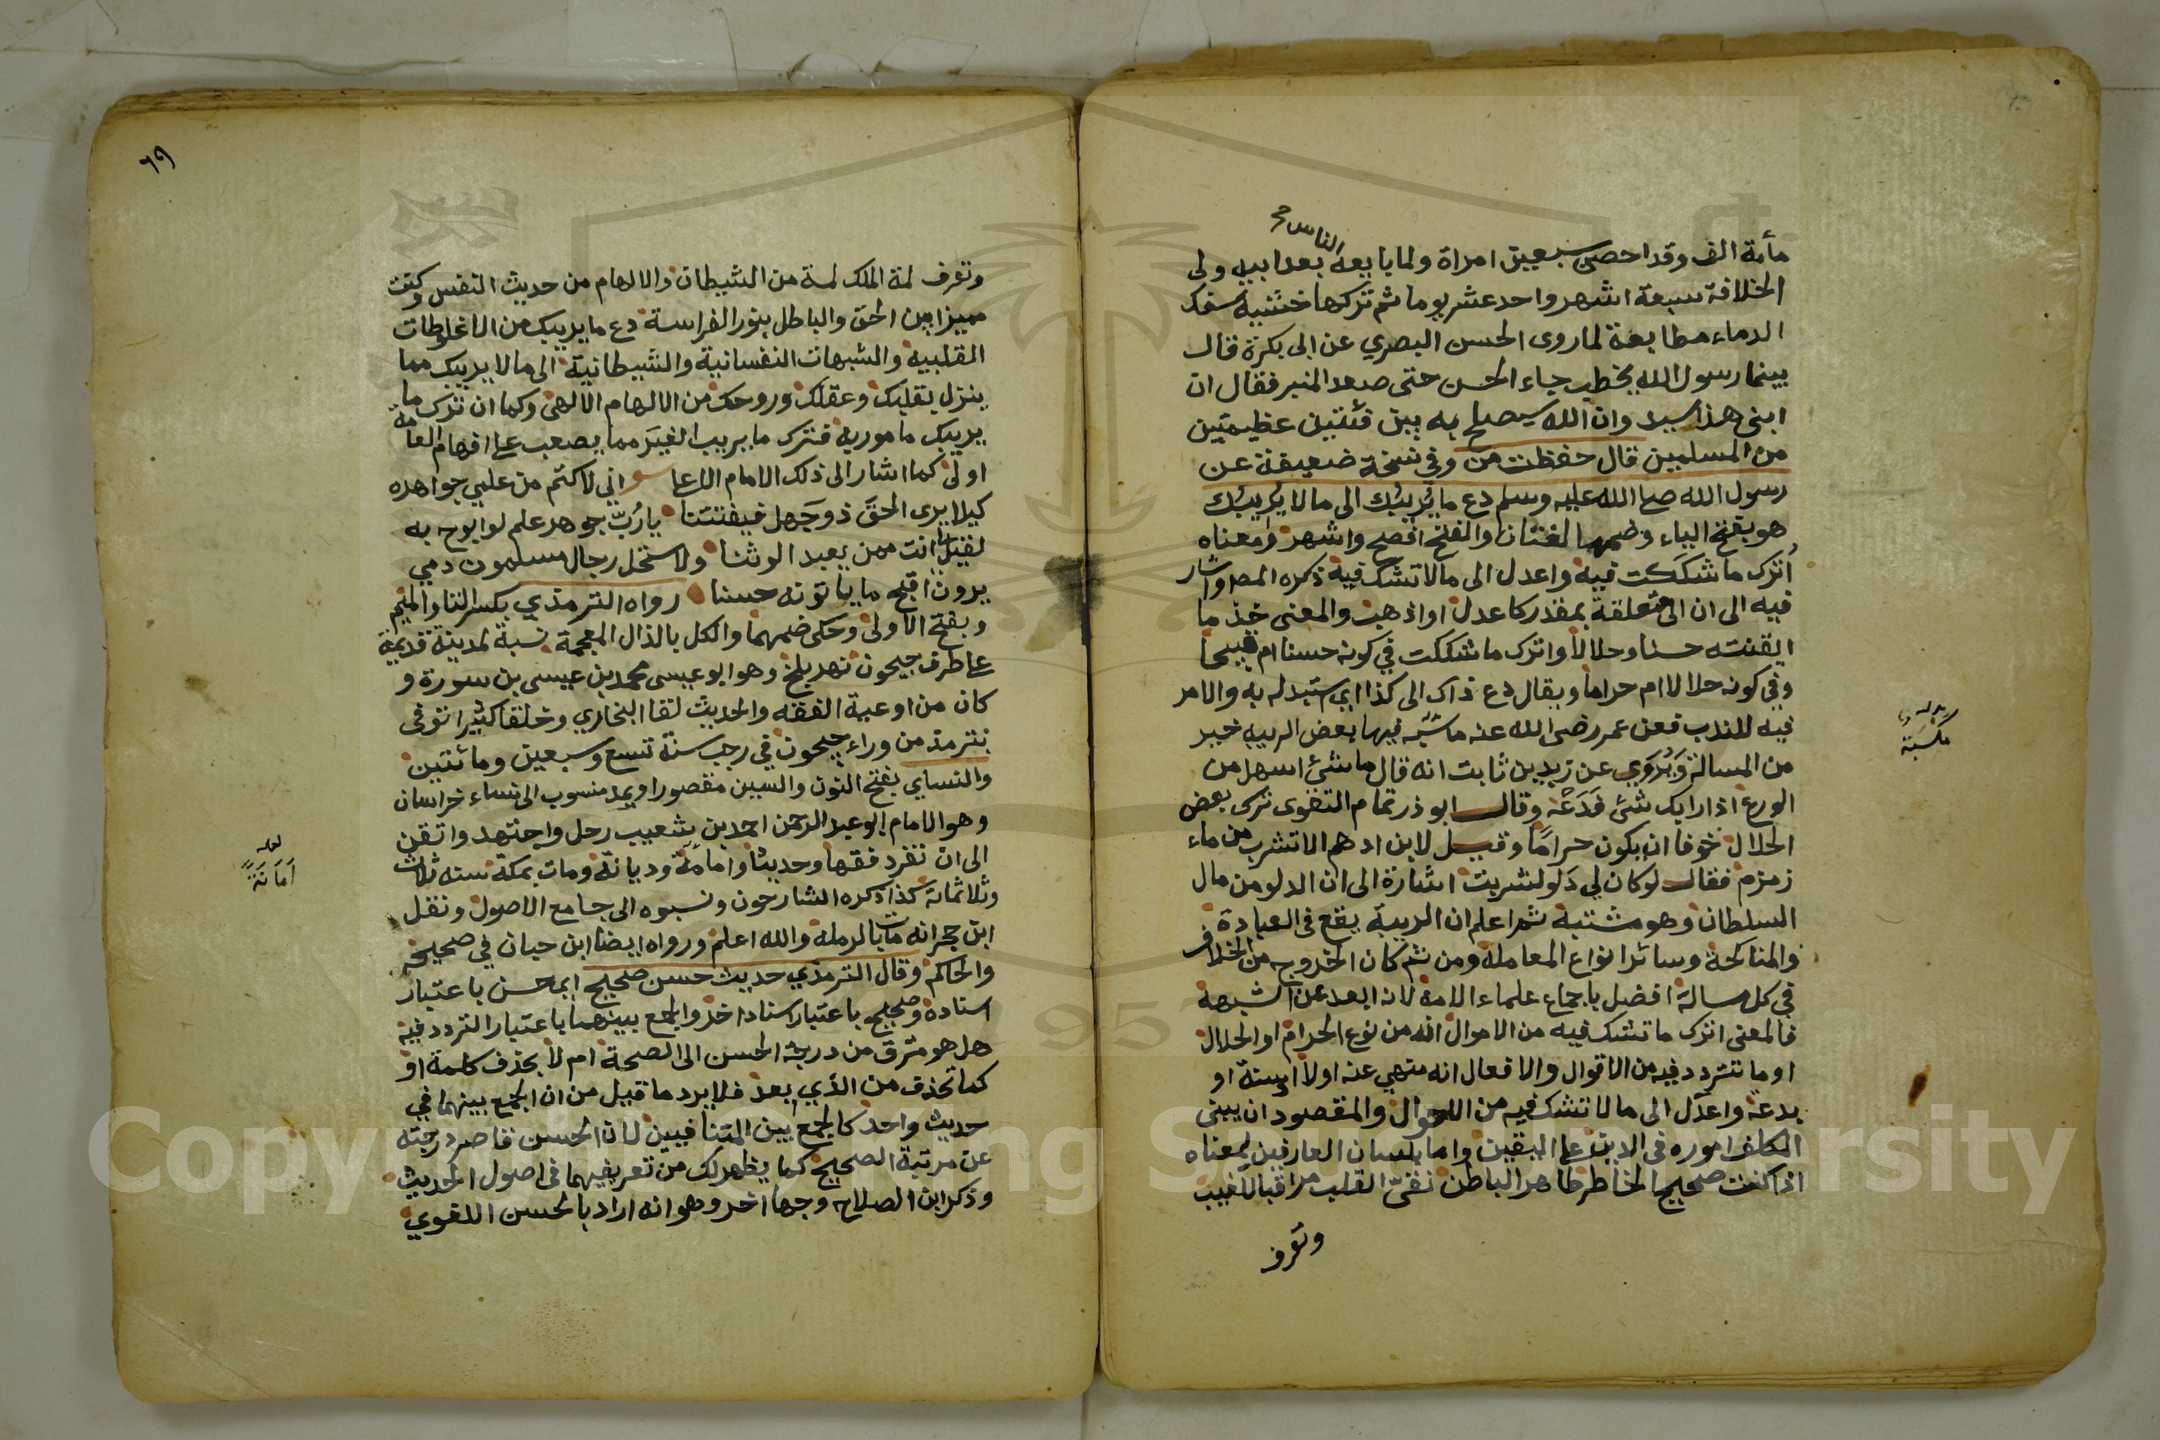 الناس صح
مأمة الف وقد احصى سبعين امراة ولما بايعه بعد ابيه ولى
الخلافة سبعة اشهر واحد عشر يوما ثم تركها خشية سفك
الدماء مطابعة لما روى الحسن البصري عن ابى بكرة قال
بينما رسول الله يخطب جاء الحسن حتى صعد المنبر فقال ان
ابنى هذا سيد وان الله سيصلح به بين فئتين عظيمتين
من المسلمين قال حفظت من وفى نسخة ضعيفة عن
رسول الله صلى الله عليه وسلم دع ما يريبك الى ما لا يريبك
هو بفتح الياء وضمها لغتان والفتح افصح واشهر ومعناه
اترك ما شككت فيه واعدل الى ما لا تشك فيه ذكره المصـ واشار
فيه الى ان الى متعلقة بمقدر كاعدل او اذهب والمعنى خذ ما
ايقنته حسنا وحلالا واترك ما شككت في كونه حسنا ام قبيحا
وفي كونه حلالا ام حراما ويقال دع ذاك الى كذا اي استبدله به والامر
فيه للندب فعن عمر رضى الله عنه فيها بعض الريبة خير
من المسالة ويروي عن زيد بن ثابت انه قال ما شئ اسهل من
الورع اذا رابك شئ فدعه وقال ابو ذر تمام التقوى ترك بعض
الحلال خوفا ان يكون حراما وقيل لابن ادهم الا تشرب من ماء
زمزم فقال لو كان لي دلو لشربت اشارة الى ان الدلو من مال
السلطان وهو مشتبه ثم اعلم ان الريبة يقع في العبادة
والمناكحة وسائر انواع المعاملة ومن ثم كان الخروج من الخلاف
في كل مسالة افضل باجماع علماء الامة لانه ابعد عن الشبهة
فالمعنى اترك ما تشك فيه من الاموال انه من نوع الحرام او الحلال
او ما تتردد فيه من الاقوال والافعال انه منهي عنه اولا او سنة او
بدعة واعدل الى ما لا تشك فيه من الاحوال والمقصود ان يبنى
المكلف اموره فى الدين على اليقين واما بلسان العارفين فمعناه
اذا كنت صحيح الخاطر طاهر الباطن نقى القلب مراقبا للغيب
وتعرف
مكسبة
٦٩
وتعرف لمة الملك لمة من الشيطان والالهام من حديث النفس وكنت
مميزا بين الحق والباطل بنور الفراسة دع ما يريبك من الاغلوطات
القلبية والشبهات النفسانية والشيطانية الى ما لا يريبك مما
ينزل بقلبك وعقلك وروحك من الالهام الالهى وكما ان ترك ما
يريبك مامور به فترك ما يريب الغير مما يصعب على افهام العامة
اولى كما اشار الى ذلك الامام اني لاكتم من علمي جواهره
كيلا يرى الحق ذو جهل فيفتتنا يا رب جوهر علم لو ابوح به
لقيل لي انت ممن يعبد الوثنا ولاستحل رجال مسلمون دمي
يرون اقبح ما ياتونه حسنا رواه الترمذي بكسر التا والميم
وبفتح الاولى وحكى ضمهما والكل بالذال المعجمة نسبة لمدينة قديمة
على طرف جيحون نهر بلخ وهو ابو عيسى محمد بن عيسى بن سورة و
كان من اوعية الفقه والحديث لقا البخاري وخلقا كثيرا توفى
بترمذ من وراء جيحون في رجب سنة تسع وسبعين ومائتين
والنساي بفتح النون والسين مقصورا ويمد منسوب الى نساء خراسان
وهو الامام ابو عبد الرحمن احمد بن شعيب رحل واجتهد واتقن
الى ان تفرد فقها وحديثا وامامة وديانة ومات بمكة سنه ثلاث
وثلاثمائة كذا ذكره الشارحون ونسبوه الى جامع الاصول ونقل
ابن حجر انه مات بالرملة والله اعلم ورواه ايضا ابن حبان في صحيحه
والحاكم وقال الترمذي حديث حسن صحيح اي حسن باعتبار
اسناده وصحيح باعتبار اسناد اخر والجمع بينهما باعتبار التردد فيه
هل هو مترق من درجة الحسن الى الصحة ام لا بحذف كلمة او
كما تحذف من الذي بعد فلا يرد ما قيل من ان الجمع بينهما في
حديث واحد كالجمع بين المتنافيين لان الحسن قاصر درجته
عن مرتبة الصحيح كما يظهر لك من تعريفيهما فى اصول الحديث
وذكر ابن الصلاح وجها اخر وهو انه اراد بالحسن اللغوي
لعله
امانة
Copyright © King Saud University
1957